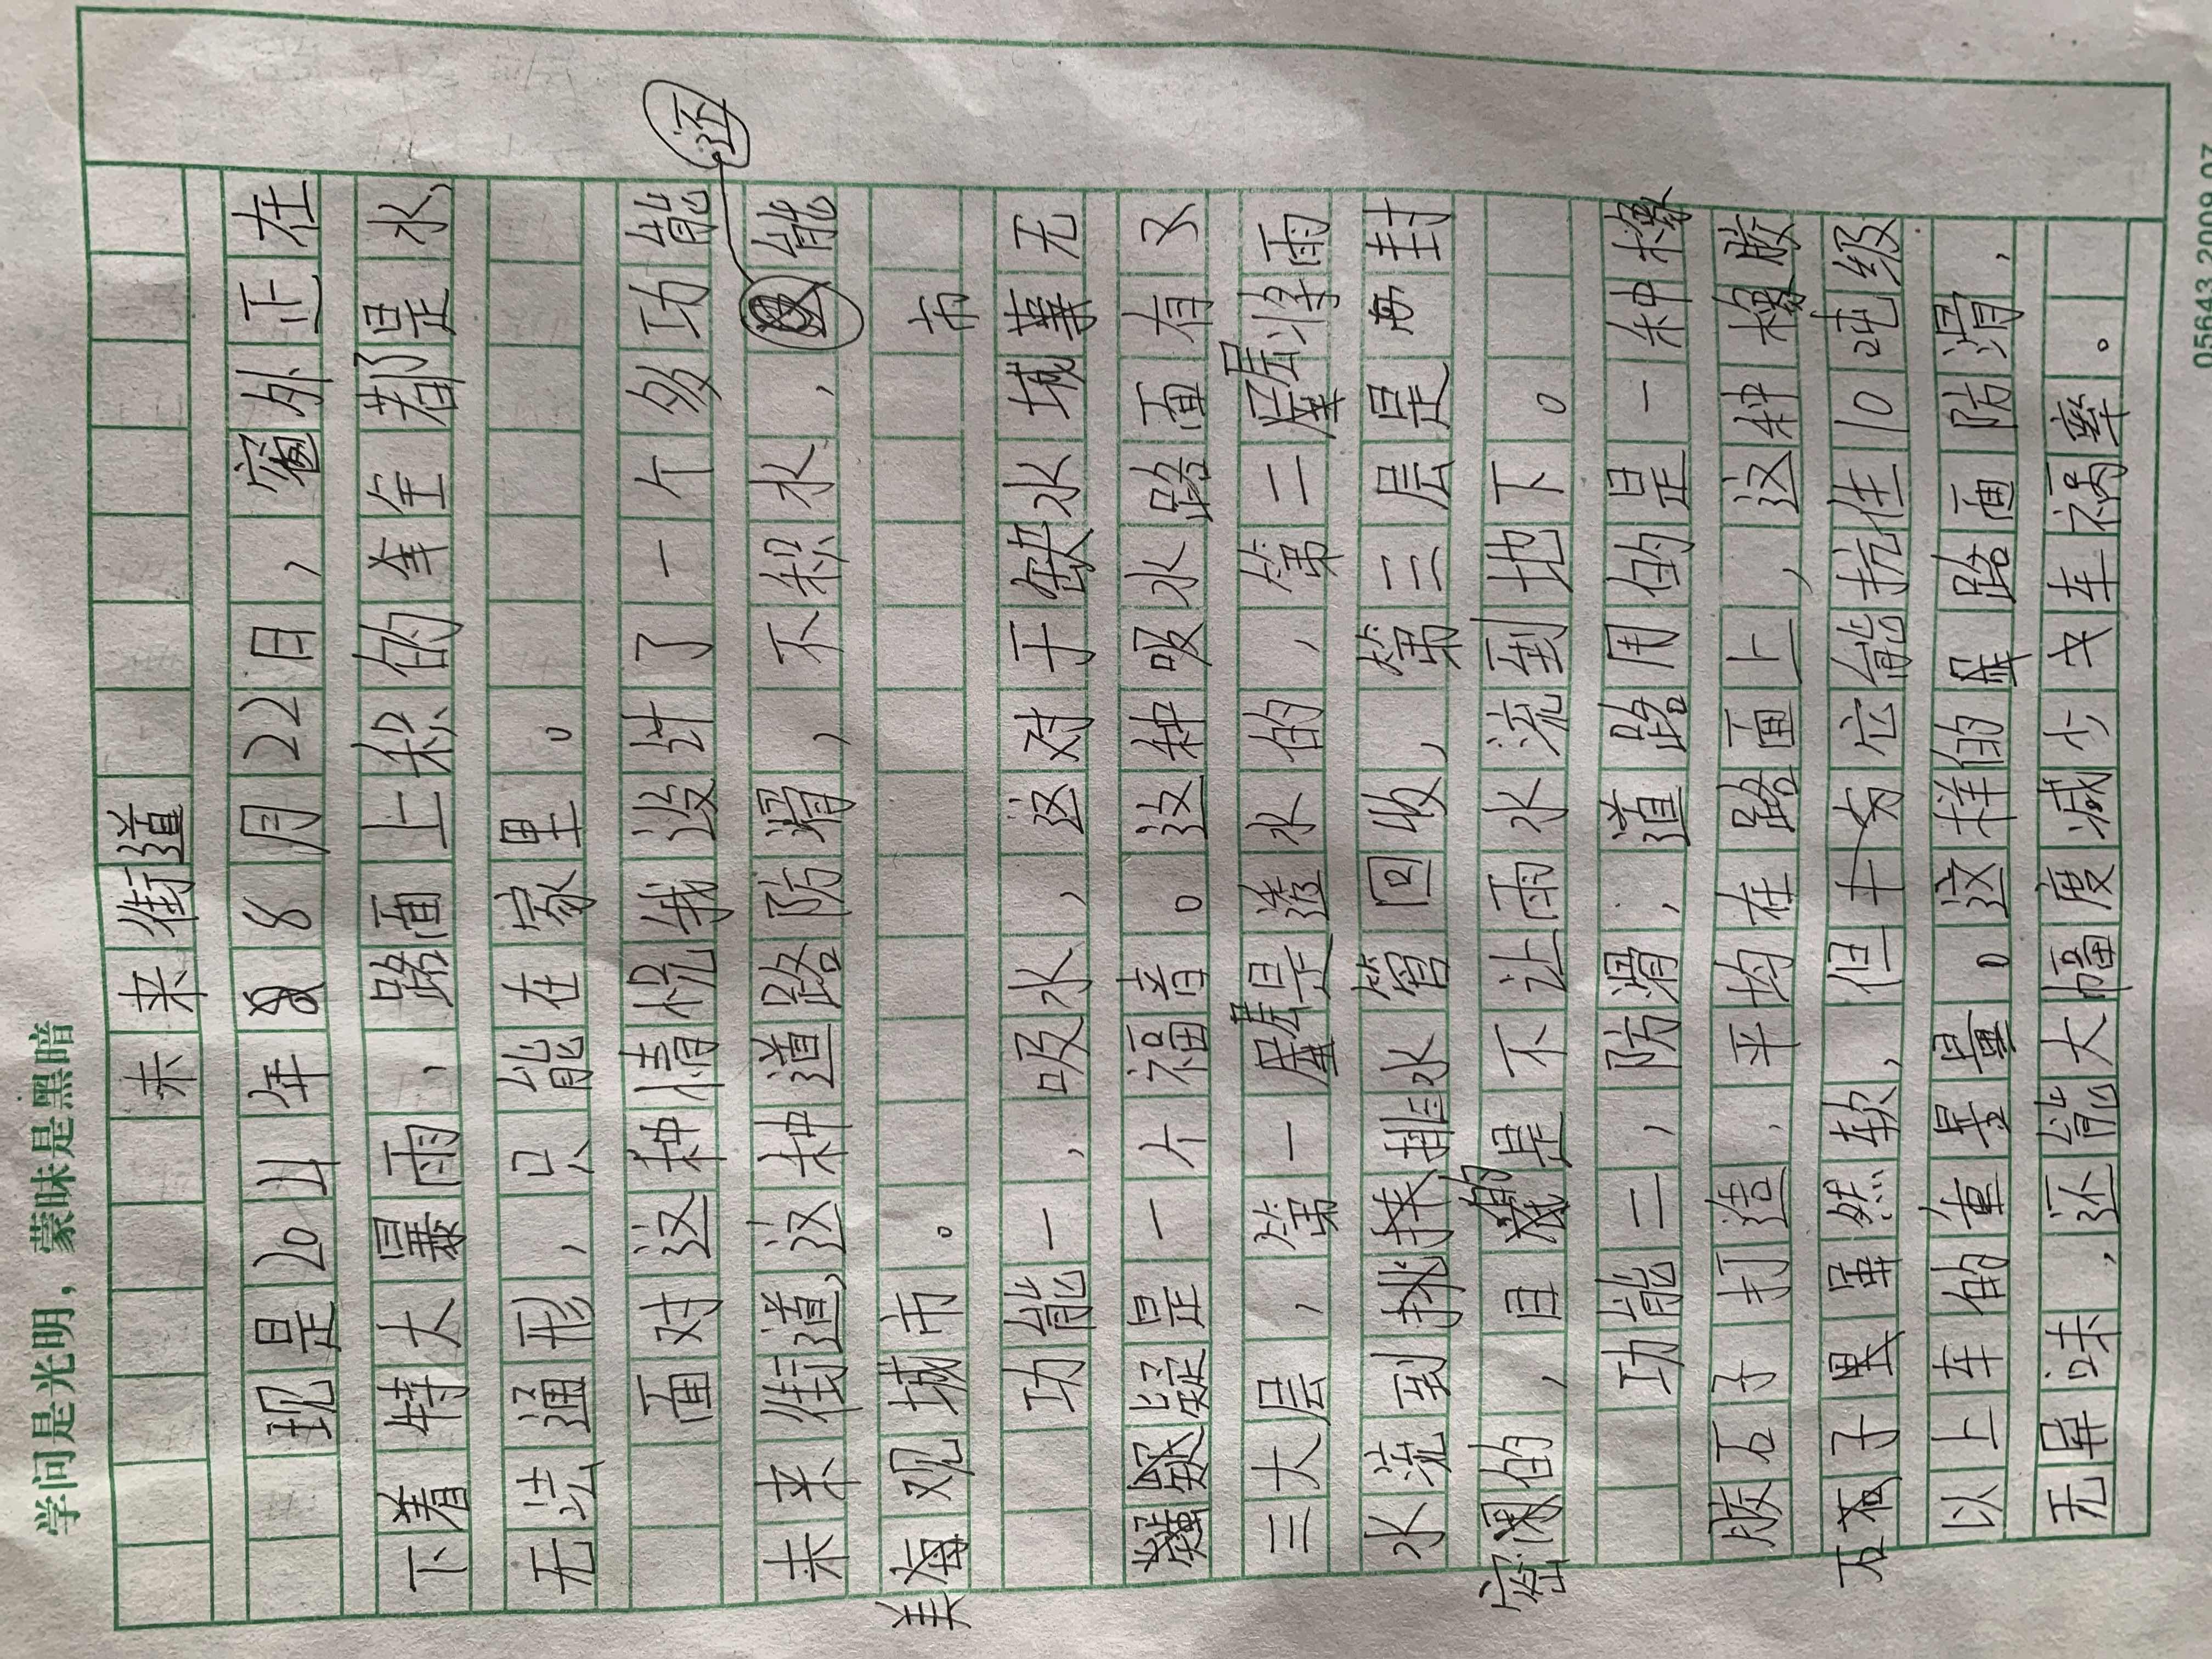 学问是光明，蒙昧是黑暗
未来街道
现是2011年8月22日，窗外正在
下着特大暴雨，路面上积的全都是水，
无法通形，只能在家里。
面对这种情况我设计了一个多功能
未来街道，这种道路防滑，不积水，还能
美观城市。
功能一，吸水，这对于缺水城市无
疑是一个福音。这种吸水路面有又
三大层，第一层是透水的，第二层将雨
水流到排水管回收，第三层是封
密的，且是不让雨水流到地下。
功能二，防滑，道路用的是一种橡
胶石子打造，平均在路面上，这种橡胶
石子虽然软，但它能抗住10吨级
以上车的重量。这样的路面防滑，
无味，还能大幅度减少车祸率。
05643.2009.07